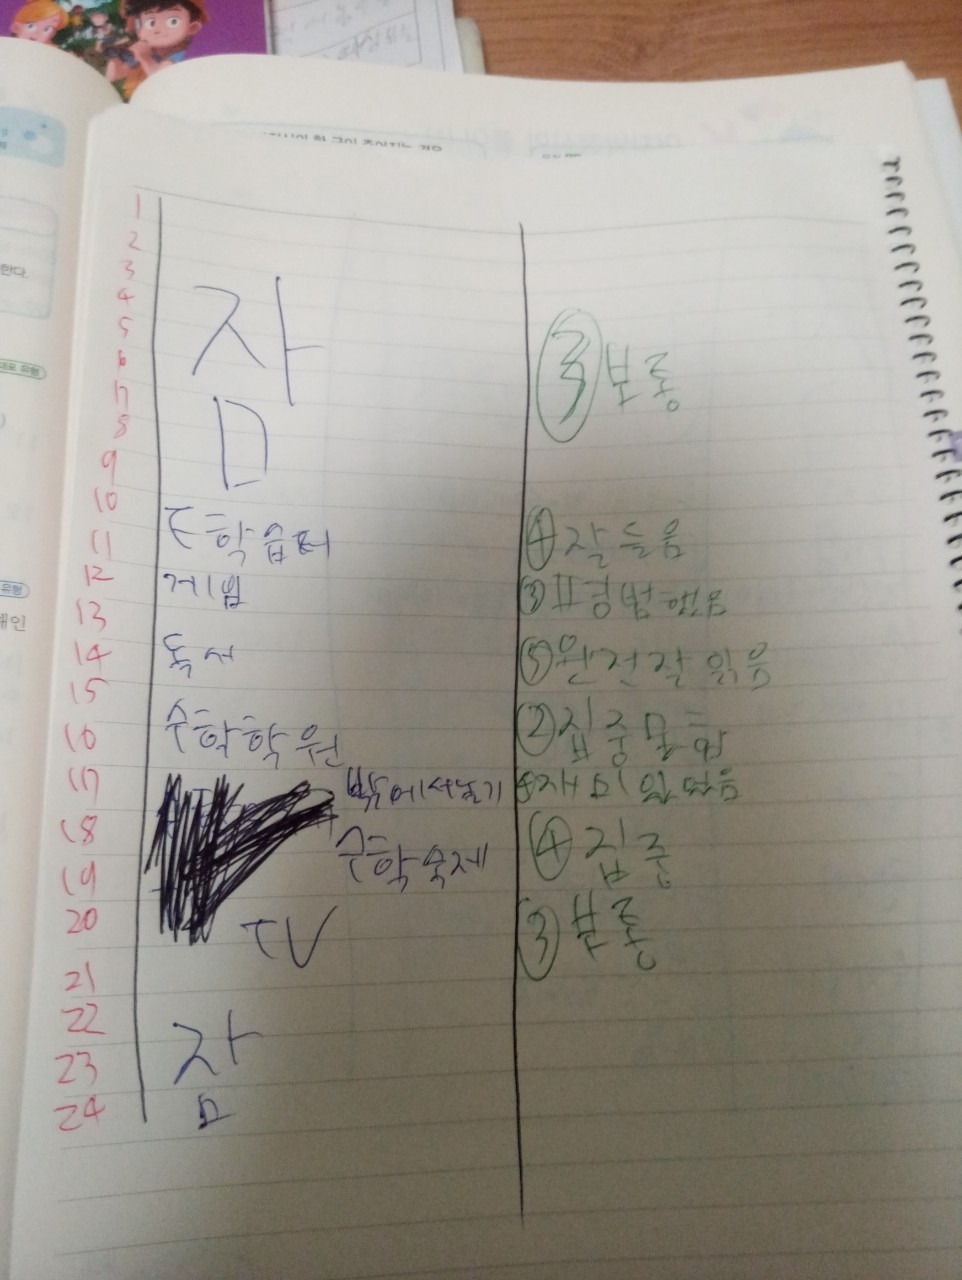 한다.
대표 유형
유형
1
2
3
4
5
6
17
8
9
잠
③ 보통
10
11 E학습터 ④ 잘 들음
12 게임
13
14 독서 ⑤ 완전 잘 읽음
15
16 수학학원 ② 집중 못함
17 밖에서 놀기
18 ④ 집중
19 수학 숙제
20 TV ③ 보통
21
22
23
24
잠